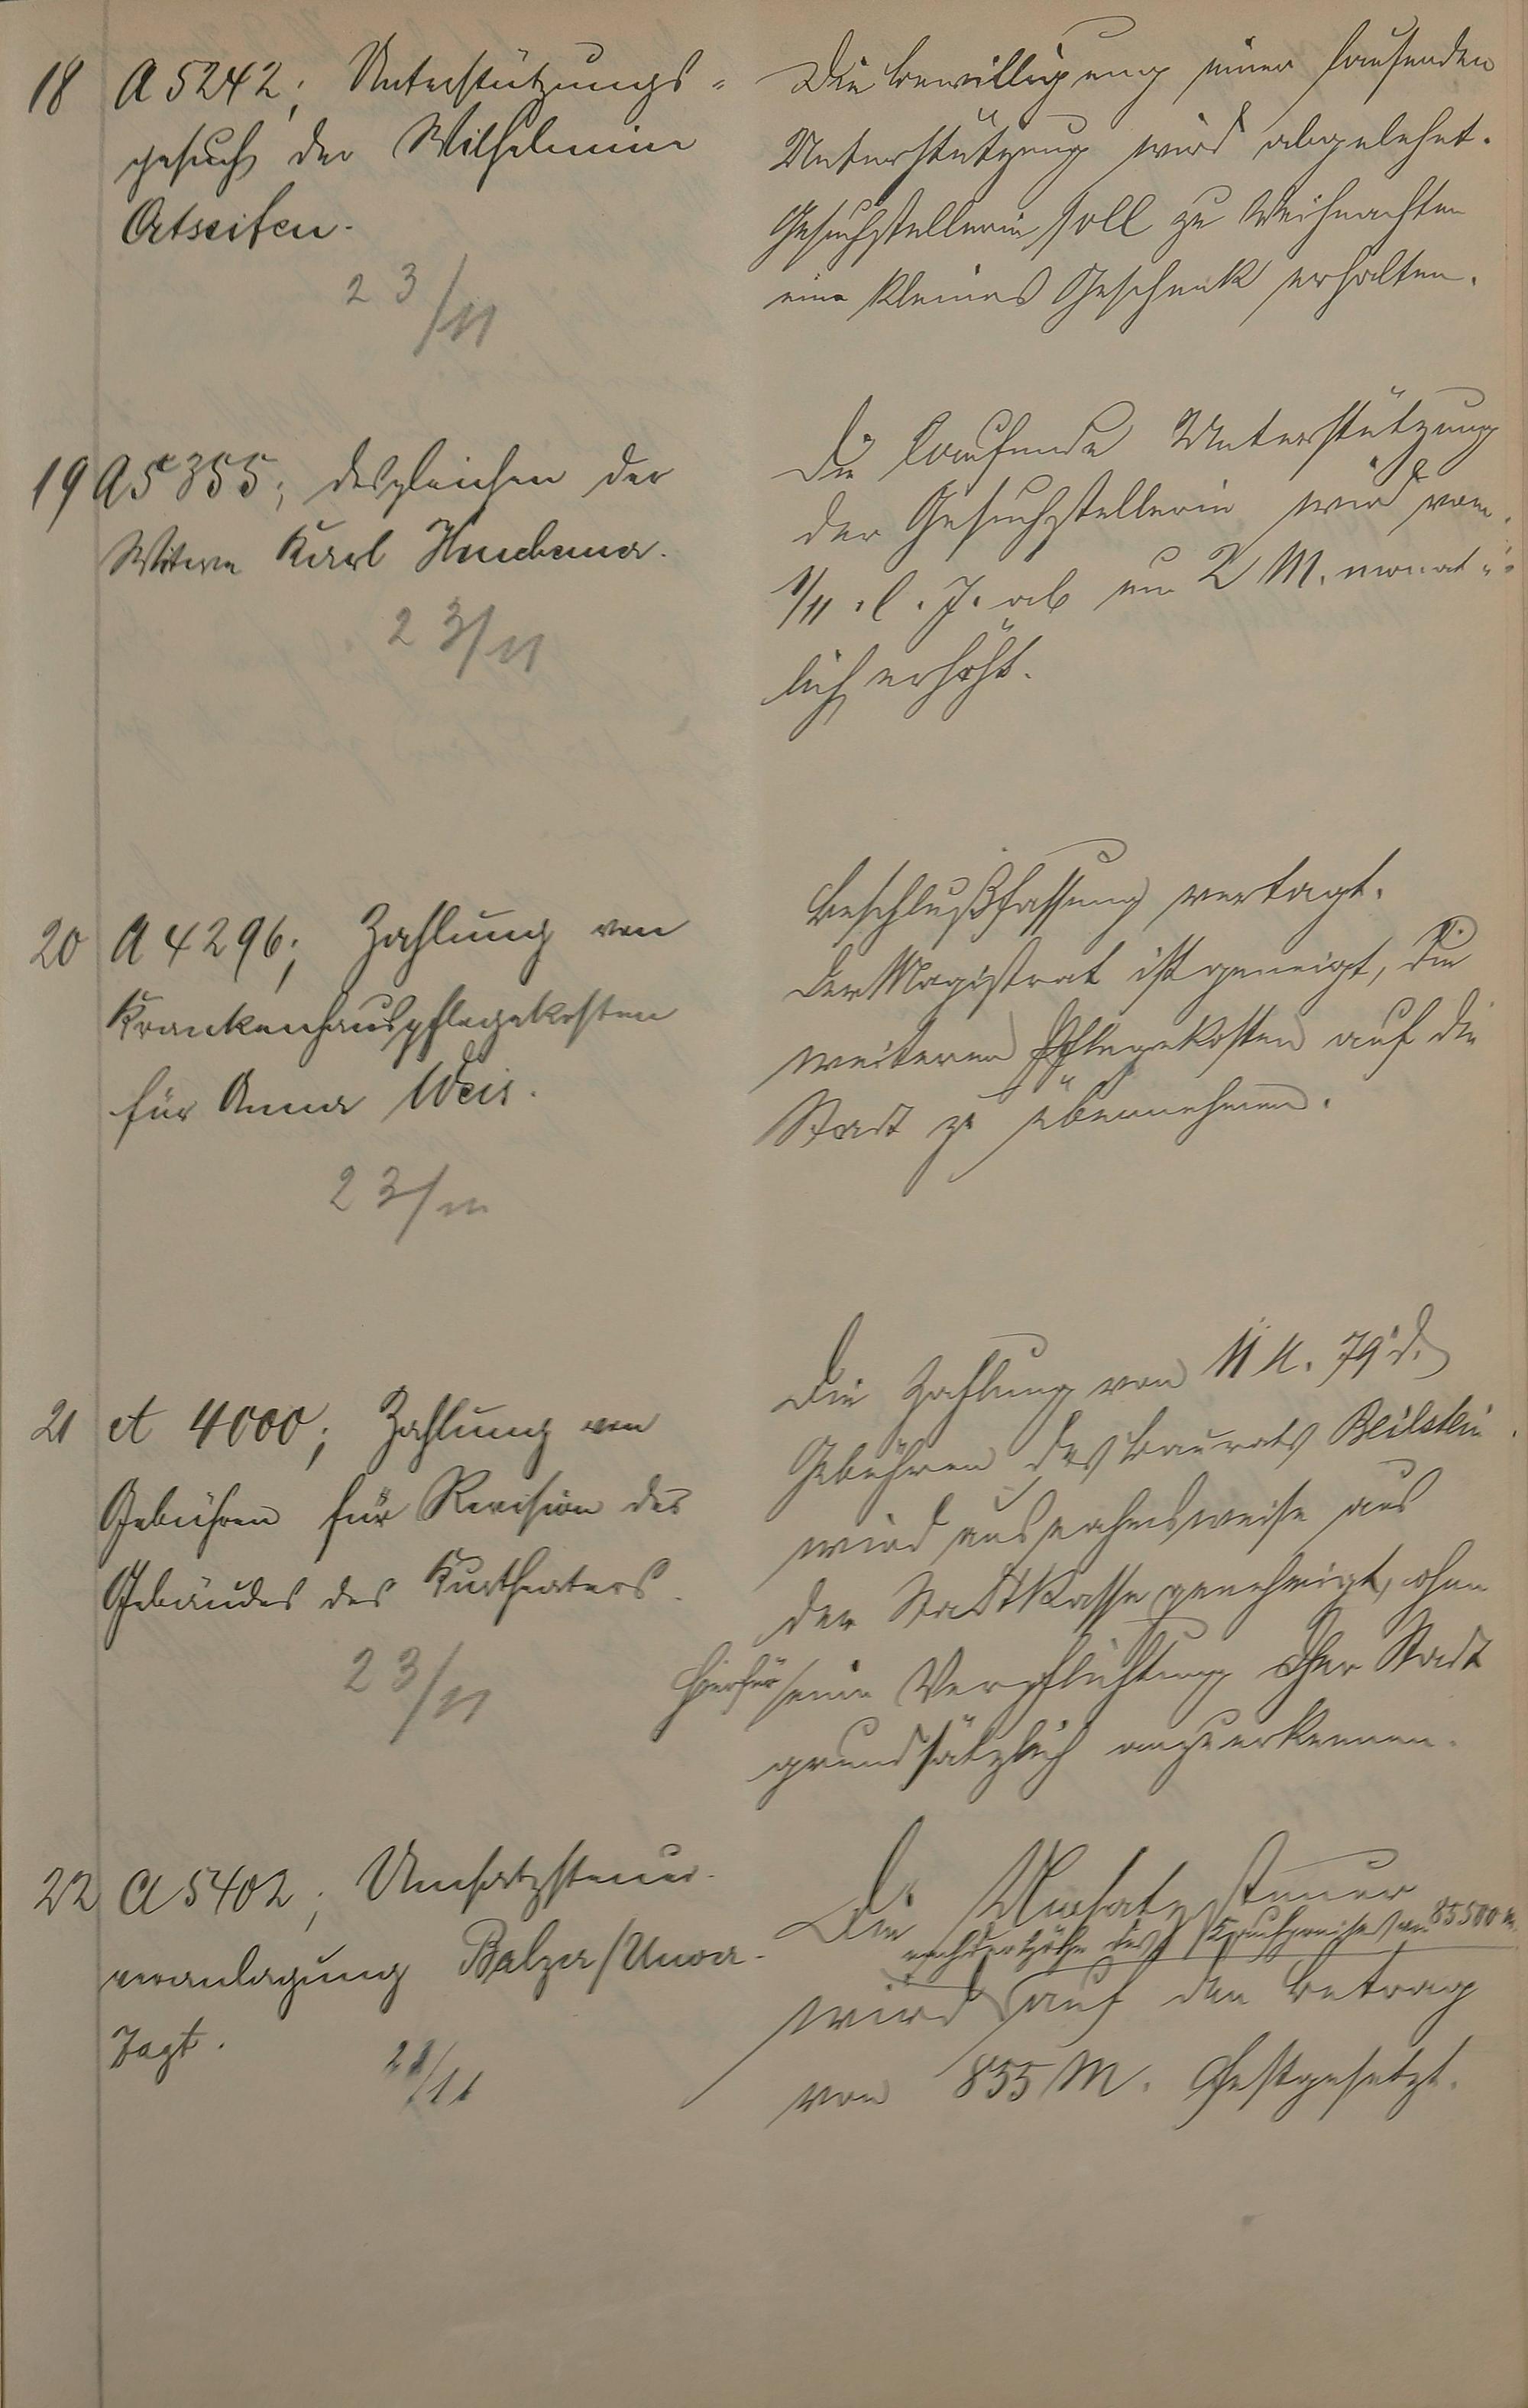 18 A 5242; Unterstützungs-
gesuch der Wilhelmine
Ortseifen.
23/11
Die Bewilligung einer laufenden
Unterstützung wird abgelehnt.
Gesuchstellerin soll zu Weihnachten
eine kleines Geschenk erhalten.
19 A 5355; desgleichen der
Witwe Karl
23/11
Die laufende Unterstützung
der Gesuchstellerin wird vom
1/11. l. J. ab um 2 M. monat-
lich erhöht.
20 A 4296; Zahlung von
Krankenhauspflegekosten
für Anna Weis.
23/11
Beschlußfassung vertagt.
Der Magistrat ist geneigt, die
weiteren Pflegekosten auf die
Stadt zu übernehmen.
21 A 4000; Zahlung von
Gebühren für Revision des
Gebäudes des Kurtheaters.
23/11
Die Zahlung von 11 M. 79 d.
Gebühren des Baurats Beilstein
wird ausnahmsweise aus
der Stadtkasse genehmigt, ohne
hierfür eine Verpflichtung der Stadt
grundsätzlich anzuerkennen.
22 A 5402; Umsatzsteuer-
veranlagung Balzer/Unver-
zagt.
23/11
Die Umsatzsteuer
nach der Höhe des Kaufpreises von 85500 M.
wird auf den Betrag
von 855 M. festgesetzt.